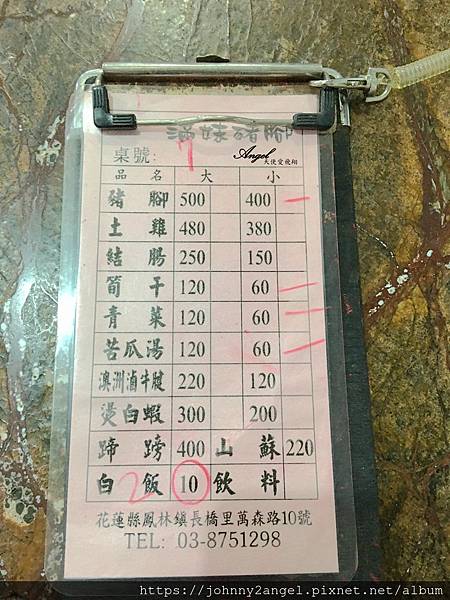 滿妹豬腳
桌號: 7 Angel 天使愛飛翔
品名 大 小
豬腳 500 400 一
土雞 480 380
結腸 250 150
筍干 120 60 一
青菜 120 60 一
苦瓜湯 120 60 一
澳洲滷牛腱 220 120
燙白蝦 300 200
蹄膀 400 山蘇 220
白飯 2 10 飲料
花蓮縣鳳林鎮長橋里萬森路10號
TEL: 03-8751298
https://johnny2angel.pixnet.net/album